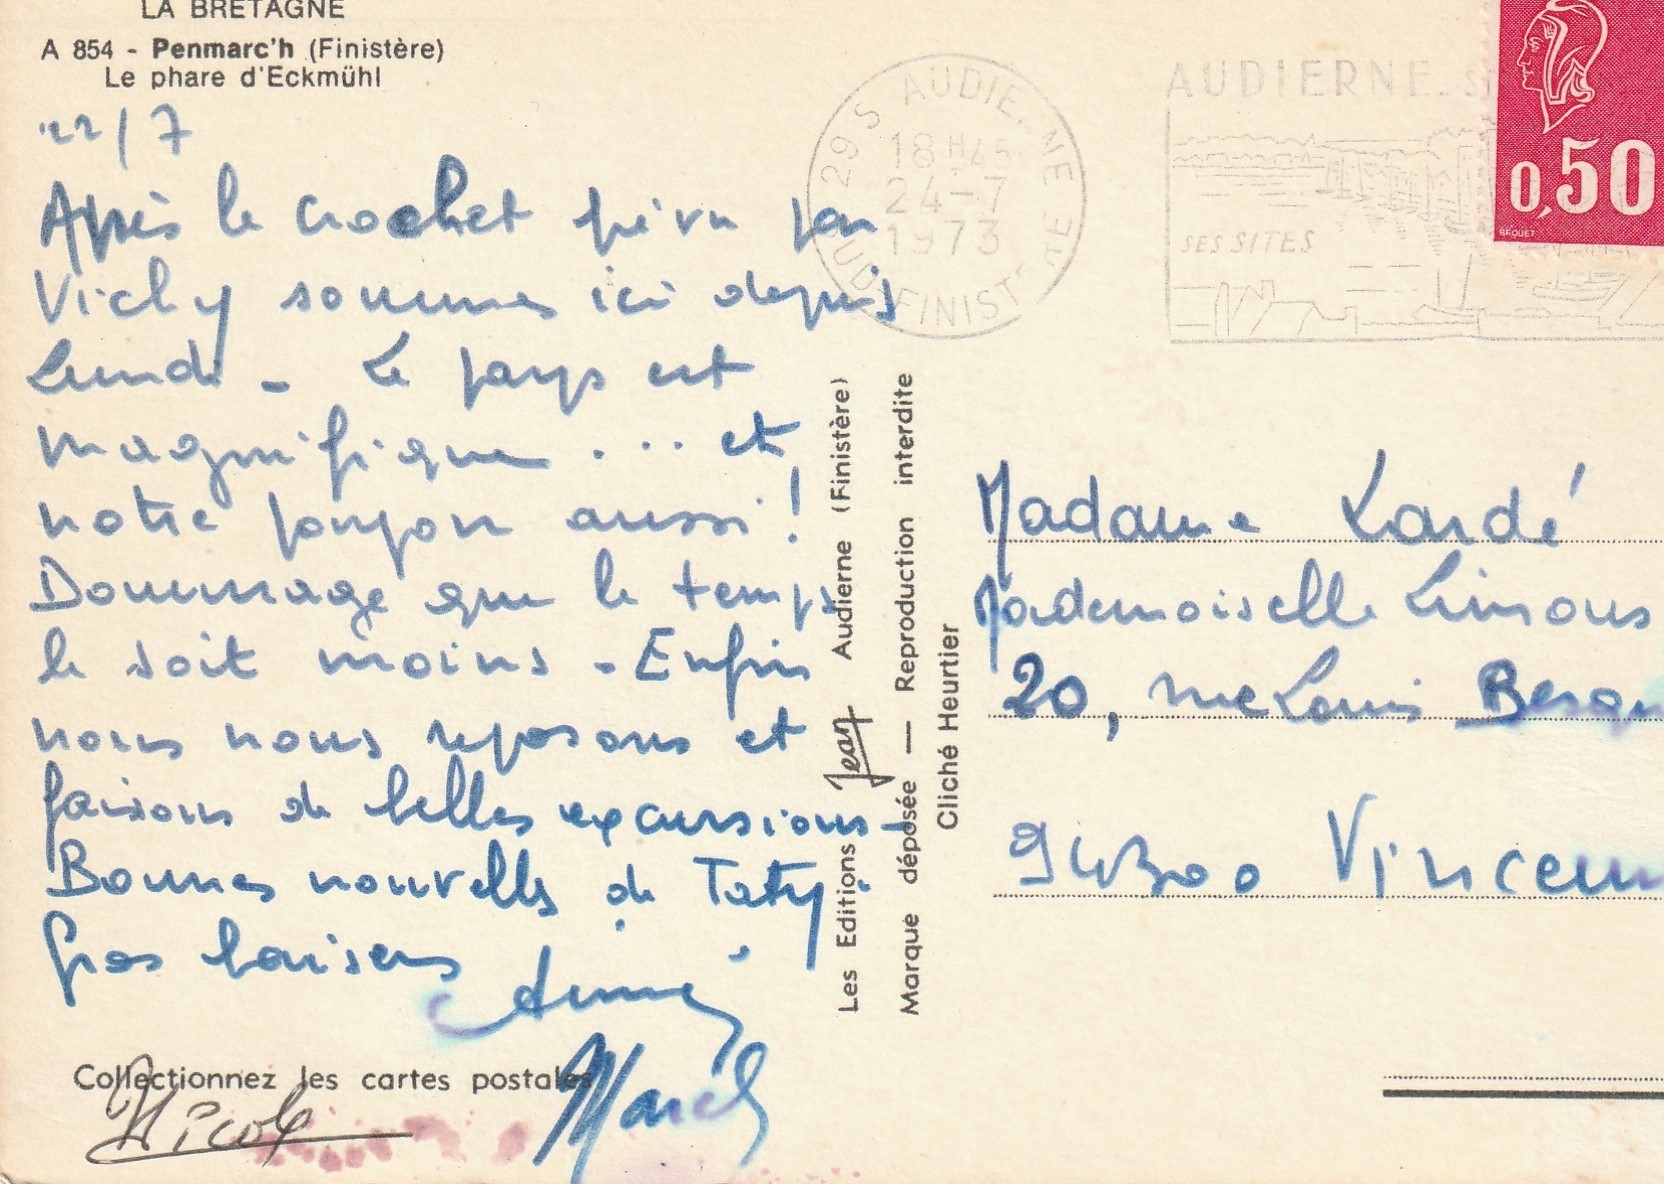 LA BRETAGNE
A 854 - Penmarc'h (Finistère)
Le phare d'Eckmühl
22/7
Après le crochet prévu par
Vichy sommes ici depuis
Lundi - Le pays est
magnifique ... et
notre joujou aussi !
Dommage que le temps
le soit moins - Enfin
nous nous reposons et
faisons de belles excursions -
Bonnes nouvelles de Taty.
Gros baisers
Aimé
Marcel
Nicole
Collectionnez les cartes postales
Les Editions Jean Audierne (Finistère)
Marque déposée — Reproduction interdite
Cliché Heurtier
29 S AUDIERNE
18 H 45
24-7
1973
FINISTERE
AUDIERNE
SES SITES
0,50
BEQUET
Madame Lardé
Mademoiselle Limous
20, rue Louis Besqu
94300 Vincenn